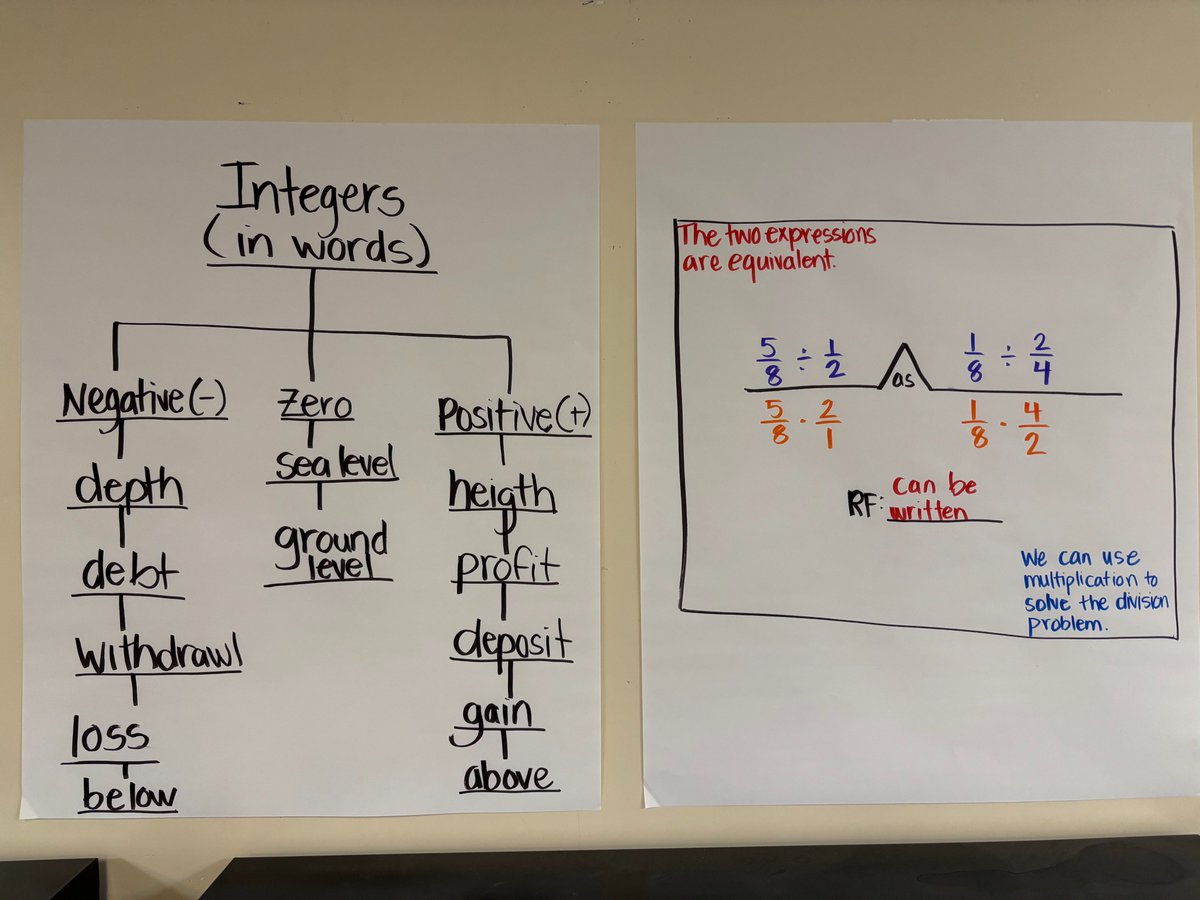 Integers
(in words)
Negative (-)
depth
debt
withdrawl
loss
below
Zero
sea level
ground
level
Positive (+)
heigth
profit
deposit
gain
above
The two expressions
are equivalent.
5/8 ÷ 1/2 as 1/8 ÷ 2/4
5/8 · 2/1 1/8 · 4/2
RF: can be
written
We can use
multiplication to
solve the division
problem.